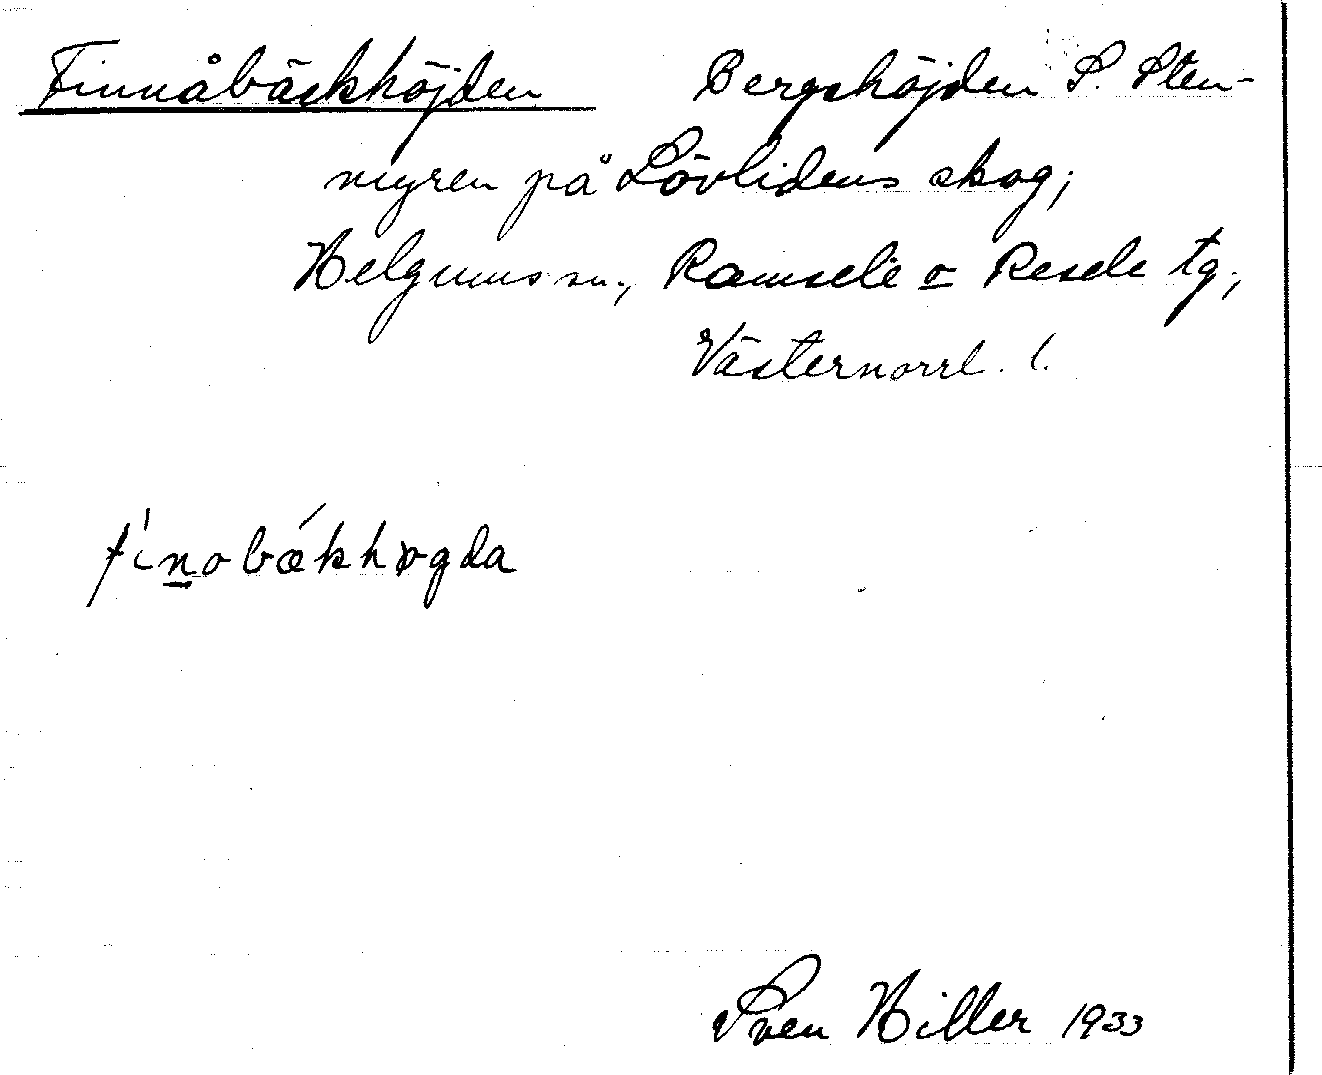 Finnåbäckhöjden Bergshöjden S. Sten-
myren på Lövlidens skog;
Helgums sn., Ramsele o Resele tg;
Västernorrl. l.
fínobǽkhøgda
Sven Hiller 1933